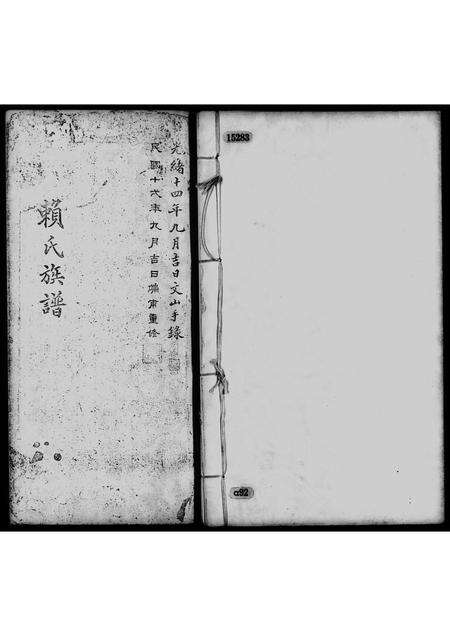 光緒十四年九月吉日文山手錄
民國十六年九月吉日佩甫重修
賴氏族譜
15283
c92